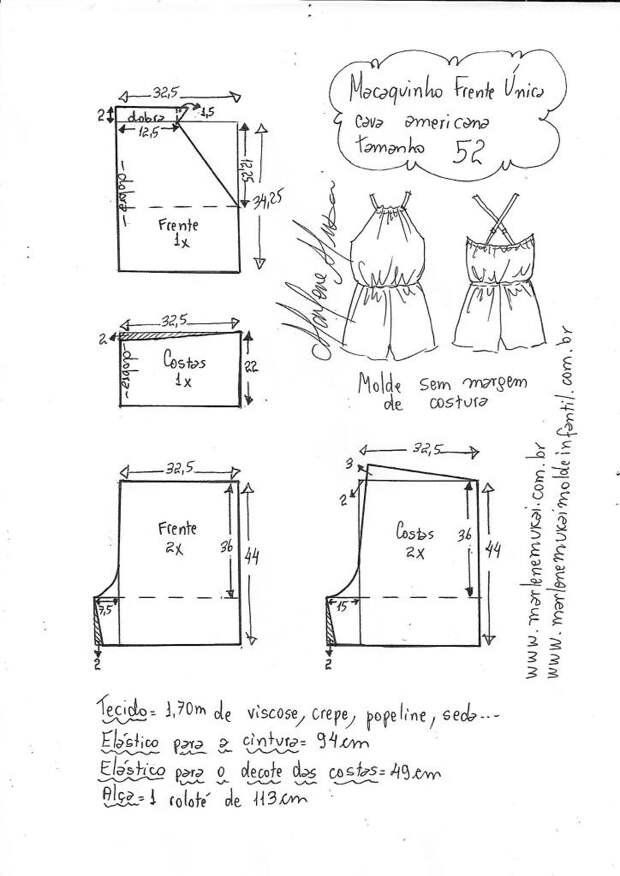 Macaquinho Frente Única
cava americana
tamanho 52
32,5
2
dobra
1,5
12,5
12,25
34,25
-dobra-
Frente
1x
Marlene Mukai
32,5
2
-dobra-
Costas
1x
22
Molde sem margem
de costura
32,5
Frente
2x
36
44
7,5
2
32,5
3
2
Costas
2x
36
44
15
2
www.marlenemukai.com.br
www.marlenemukaimoldeinfantil.com.br
Tecido= 1,70m de viscose, crepe, popeline, seda...
Elástico para a cintura= 94cm
Elástico para o decote das costas= 49cm
Alça= 1 roloté de 113cm